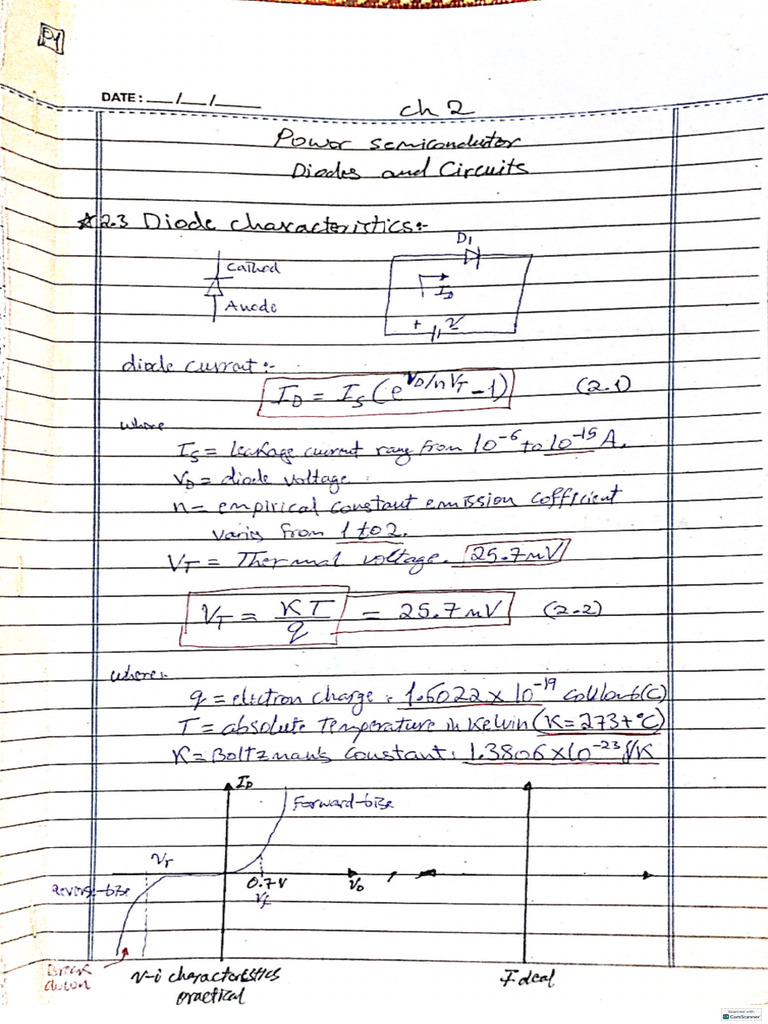 P1
DATE: __/__/____
ch 2
Power semiconductor
Diodes and Circuits
☆2.3 Diode characteristics:-
D1
Cathod
ID
Anode
+ V
diode current:-
ID = IS (e^VD/nVT - 1) (2.1)
where
IS = leakage current rang from 10^-6 to 10^-15 A.
VD = diode voltage.
n = empirical constant emission cofficient
varies from 1 to 2.
VT = Thermal voltage. 25.7mV
VT = KT/q = 25.7mV (2.2)
where:
q = electron charge: 1.6022 x 10^-19 (C)
T = absolute Temperature in Kelvin (K = 273 + °C)
K = Boltzman's constant: 1.3806 x 10^-23 J/K
ID
Forward-bise
Vr
0.7 V
VD
Vf
Revers-bise
Break
down
v-i characterestics
practical
Ideal
Scanned with
CamScanner